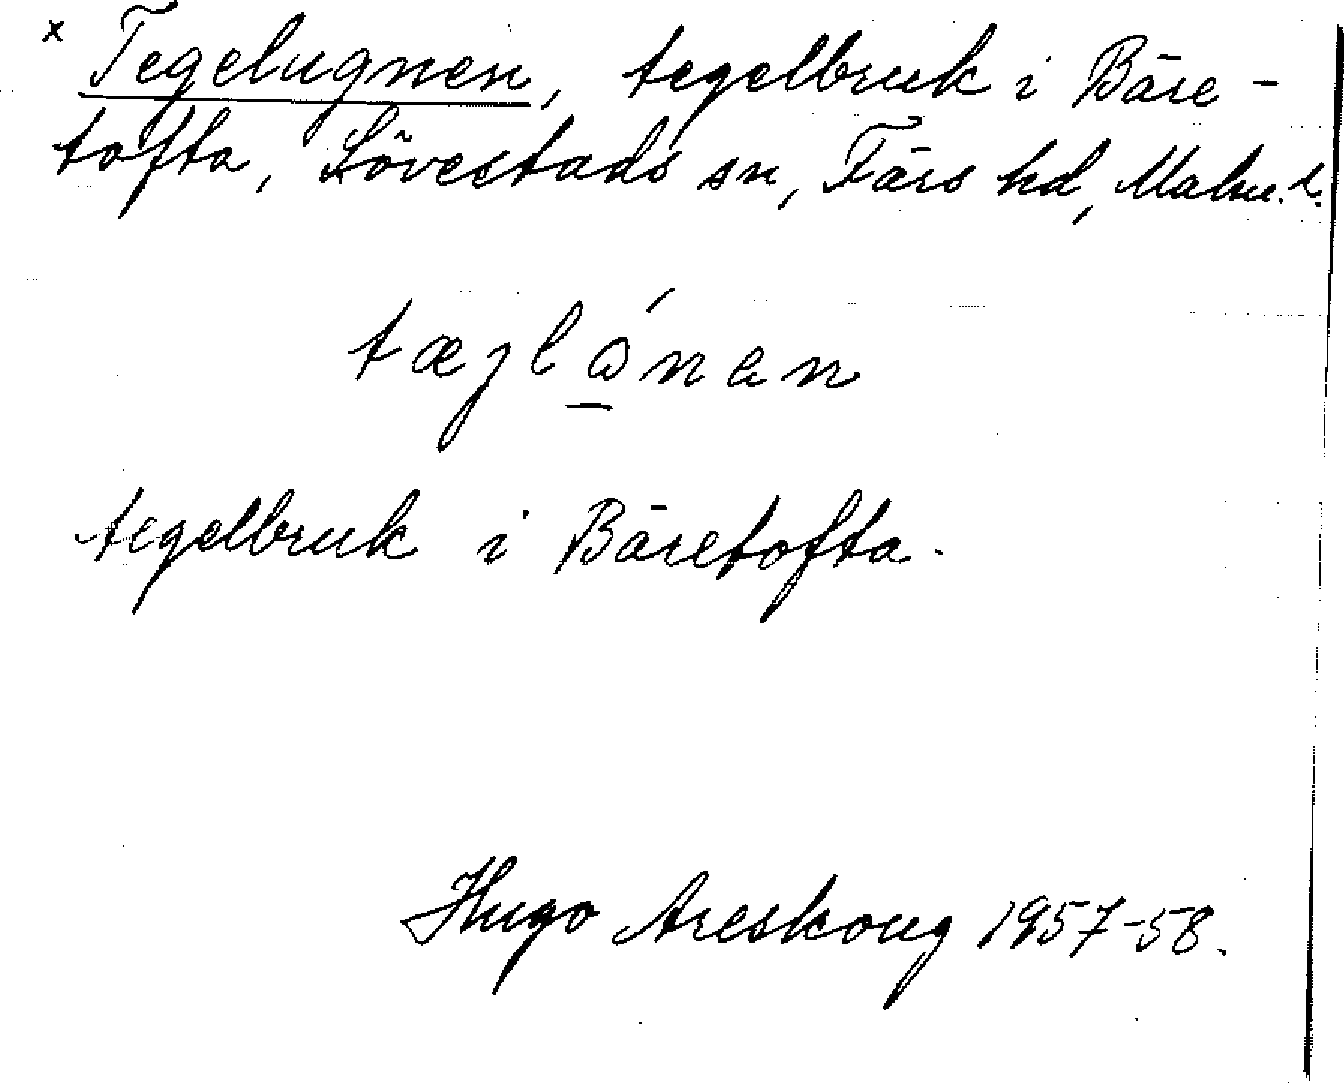 x Tegelugnen, tegelbruk i Bäre-
tofta, Lövestads sn, Färs hd, Malm. l.
tegelbruk i Bäretofta.
Hugo Areskoug 1957-58.